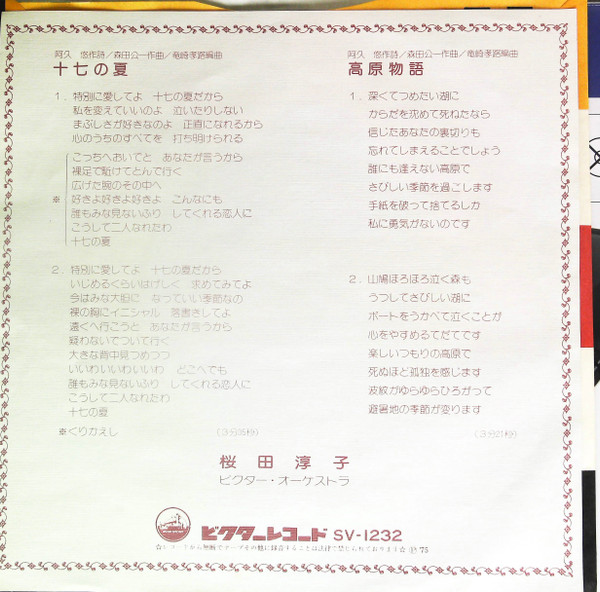 阿久 悠作詩／森田公一作曲／竜崎孝路編曲
十七の夏
1. 特別に愛してよ 十七の夏だから
私を変えていいのよ 泣いたりしない
まぶしさが好きなのよ 正直になれるから
心のうちのすべてを 打ち明けられる
こっちへおいでと あなたが言うから
裸足で駈けてとんで行く
広げた腕のその中へ
※ 好きよ好きよ好きよ こんなにも
誰もみな見ないふり してくれる恋人に
こうして二人なれたわ
十七の夏
2. 特別に愛してよ 十七の夏だから
いじめるくらいはげしく 求めてみてよ
今はみな大胆に なっていい季節なの
裸の胸にイニシャル 落書きしてよ
遠くへ行こうと あなたが言うから
疑わないでついて行く
大きな背中見つめつつ
いいわいいわいいわ どこへでも
誰もみな見ないふり してくれる恋人に
こうして二人なれたわ
十七の夏
※くりかえし (3分35秒)
阿久 悠作詩／森田公一作曲／竜崎孝路編曲
高原物語
1. 深くてつめたい湖に
からだを沈めて死ねたなら
信じたあなたの裏切りも
忘れてしまえることでしょう
誰にも逢えない高原で
さびしい季節を過ごします
手紙を破って捨てるしか
私に勇気がないのです
2. 山鳩ほろほろ泣く森も
うつしてさびしい湖に
ボートをうかべて泣くことが
心をやすめるてだてです
楽しいつもりの高原で
死ぬほど孤独を感じます
波紋がゆらゆらひろがって
避暑地の季節が変ります
(3分21秒)
桜田淳子
ビクター・オーケストラ
ビクターレコード SV-1232
☆レコードから無断でテープその他に録音することは法律で禁じられております☆ Ⓟ75